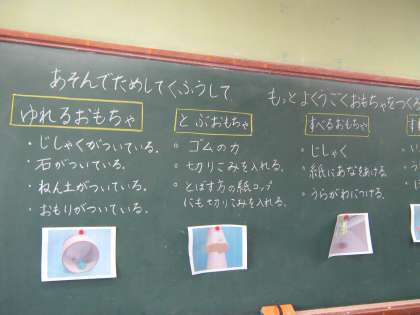 あそんでためしてくふうして
もっとよくうごくおもちゃをつくろ
ゆれるおもちゃ
・じしゃくがついている。
・石がついている。
・ねん土がついている。
・おもりがついている。
とぶおもちゃ
・ゴムの力
・切りこみを入れる。
・とばす方の紙コップ
にも切りこみを入れる。
すべるおもちゃ
・じしゃく
・紙にあなをあける。
・うらがわにつける。